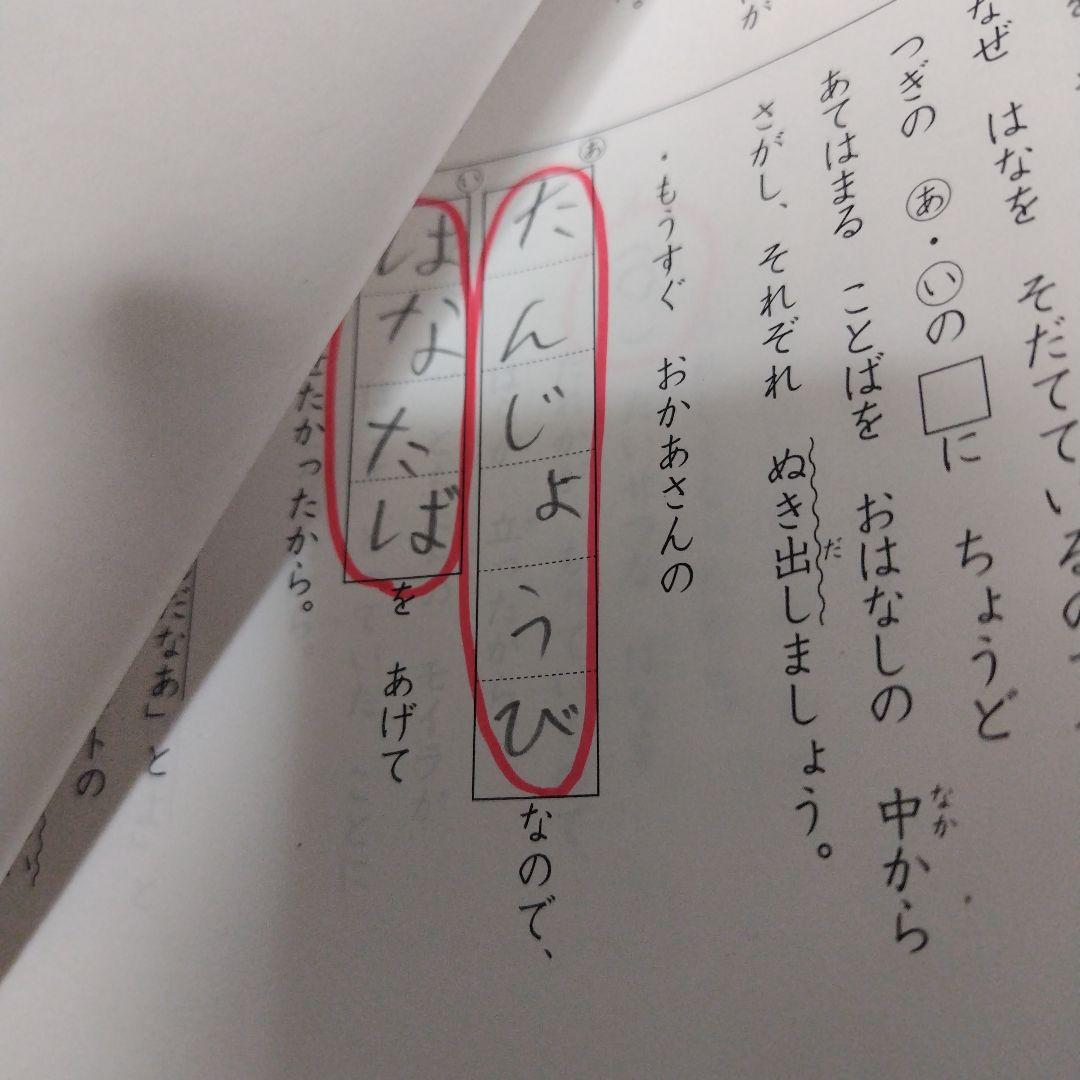 なぜ はなを そだてて いるの
つぎの あ・いの □に ちょうど
あてはまる ことばを おはなしの 中から
なか
さがし、それぞれ ぬき出しましょう。
だ
・もうすぐ おかあさんの
あ
たんじょうび なので、
い
はなたば を あげて
たかったから。
だなあ」と
トの